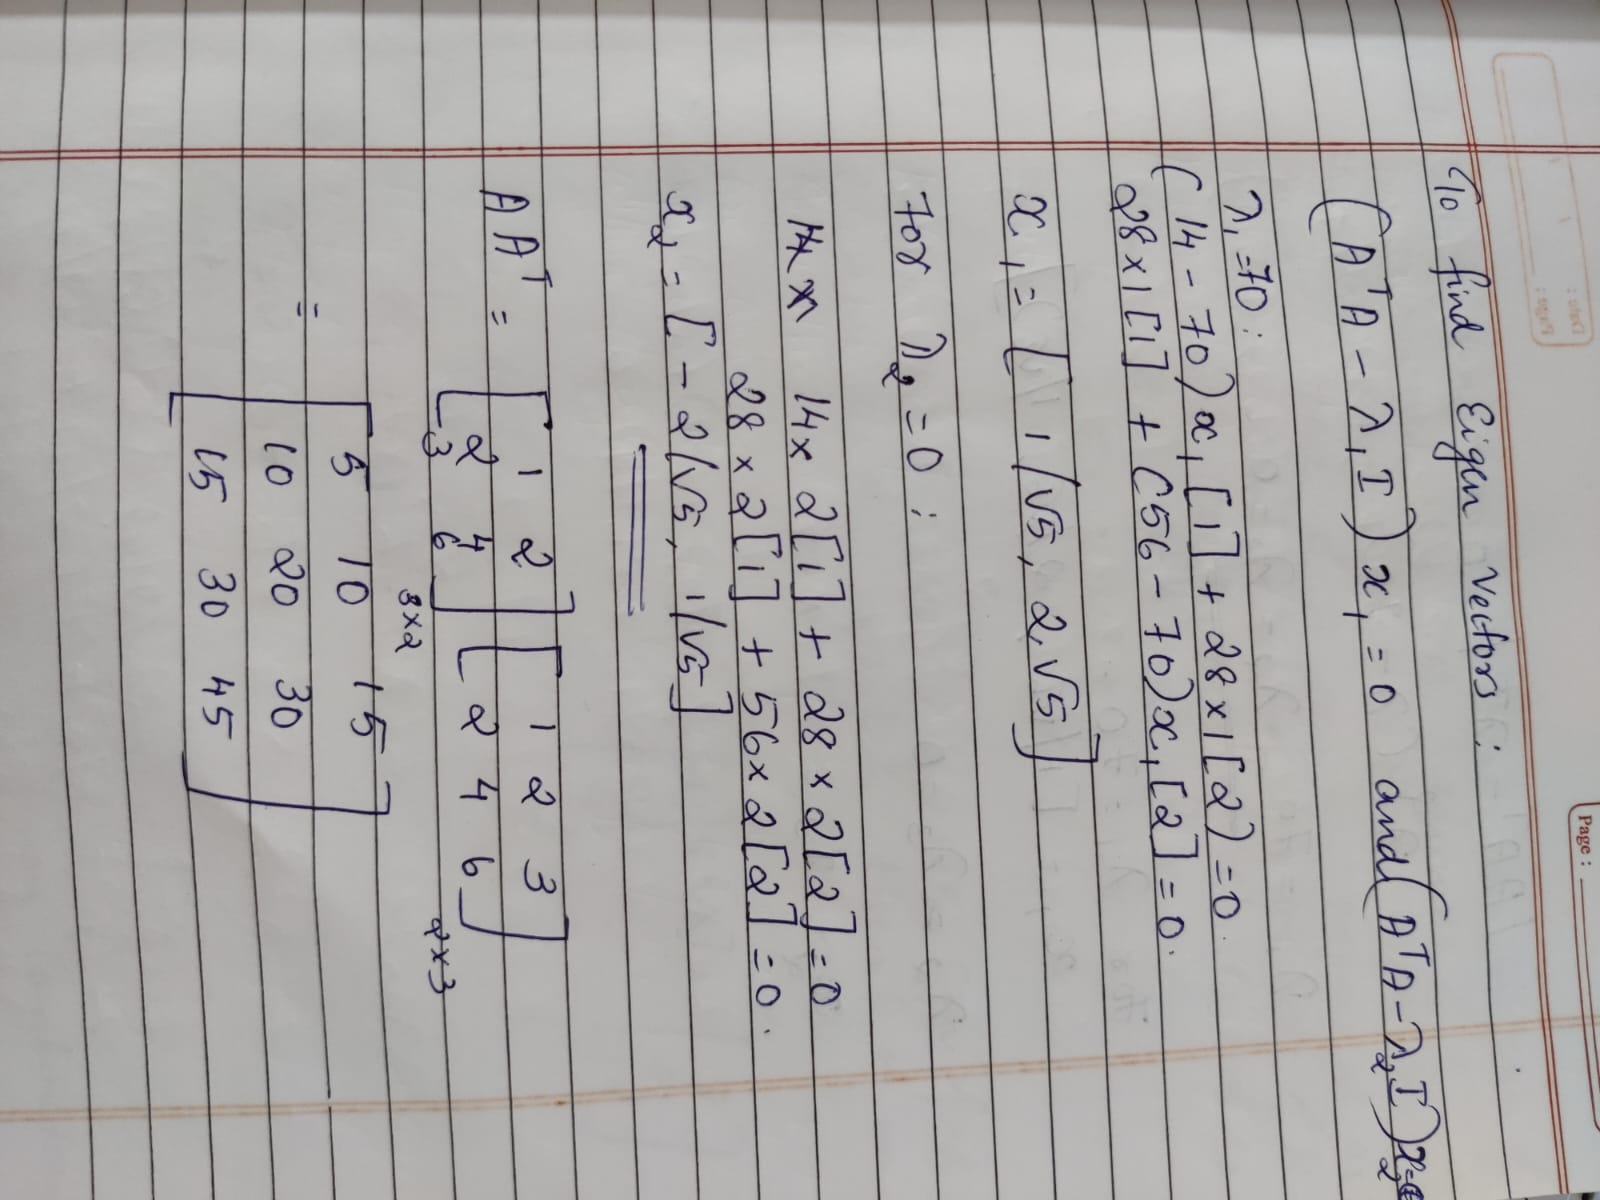 Page :
To find Eigen Vectors:
(AᵀA - λ₁I) x₁ = 0 and (AᵀA - λ₂I) x₂
λ₁ = 70 :
(14 - 70) x₁ [1] + 28 × 1 [2) = 0.
28 × 1 [1] + (56 - 70) x₁ [2] = 0.
x₁ = [ 1/√5, 2, √5 ]
For λ₂ = 0 :
14 × 2[1] + 28 × 2[2] = 0
28 × 2[1] + 56 × 2[2] = 0.
x₂ = [ - 2/√5, 1/√5 ]
AAᵀ = [ 1 2 ] [ 1 2 3 ]
[ 2 4 ] [ 2 4 6 ]
3 6
3×2 2×3
= [ 5 10 15 ]
10 20 30
15 30 45